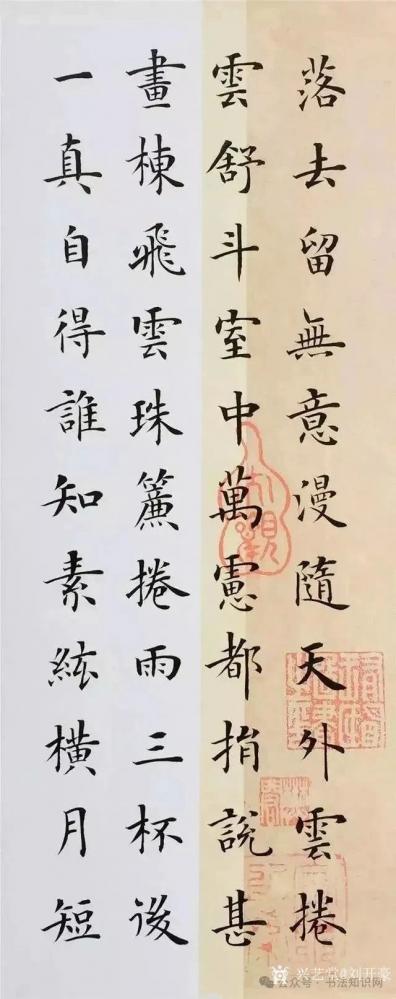 落去留無意漫隨天外雲捲
雲舒斗室中萬慮都捐說甚
畫棟飛雲珠簾捲雨三杯後
一真自得誰知素絃橫月短
兴艺堂@刘开豪
公众号·书法知识网